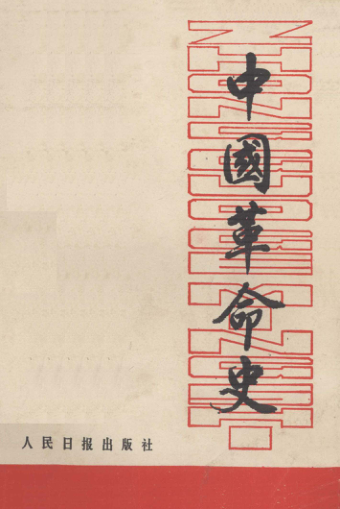 中國革命史
人民日报出版社